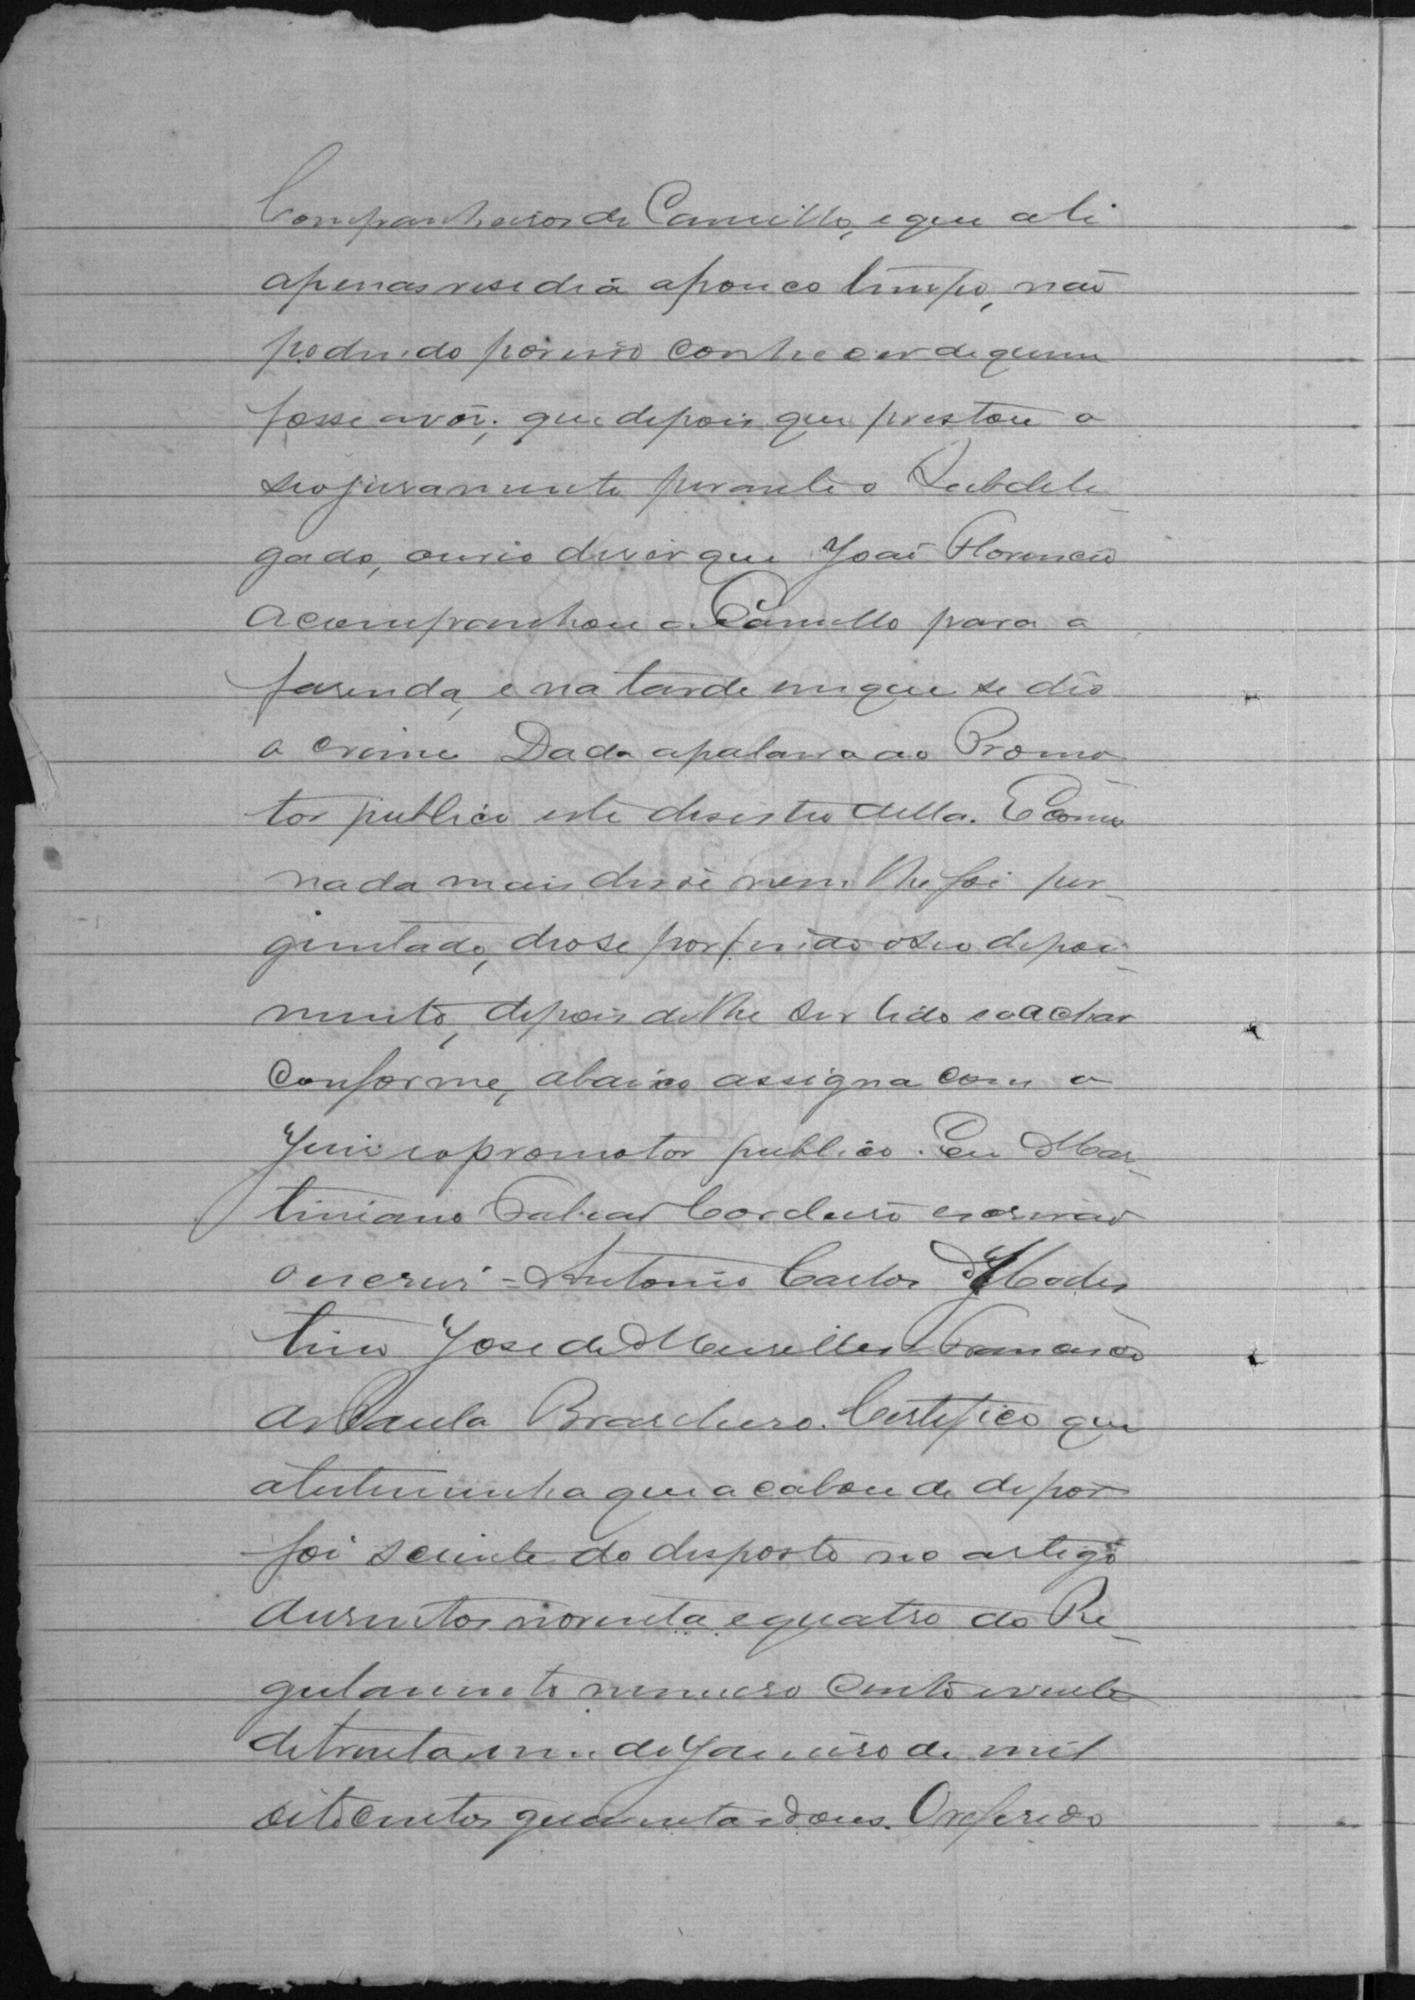 Companheiros de Camillo, e que ali
apenas residia a pouco tempo, não
podendo por isso conhecer de quem
fosse a voz; que depois que prestou o
seo juramento perante o Subdele-
gado, ouvio dizer que João Florencio
acompanhou a Camillo para a
fasenda, e na tarde em que se deo
o crime Dada a palavra ao Promo-
tor publico este desistio della. E como
nada mais disse nem lhe foi per-
guntado, deo se por findo o seo depoi-
mento, depois de lhe ser lido e o achar
conforme, abaixo assigna com o
Juiz e o promotor publico. Eu Mar-
tiniano Cordeiro escrivão
o escrevi - Antonio Carlos
tino José de Meirelles Francisco
de Paula Brasileiro. Certifico que
a testemunha que acabou de depor
foi sciente do disposto no artigo
dusentos noventa e quatro do Re-
gulamento numero cento e vinte
de trinta e um de Janeiro de mil
oitocentos quarenta e dous. O referido